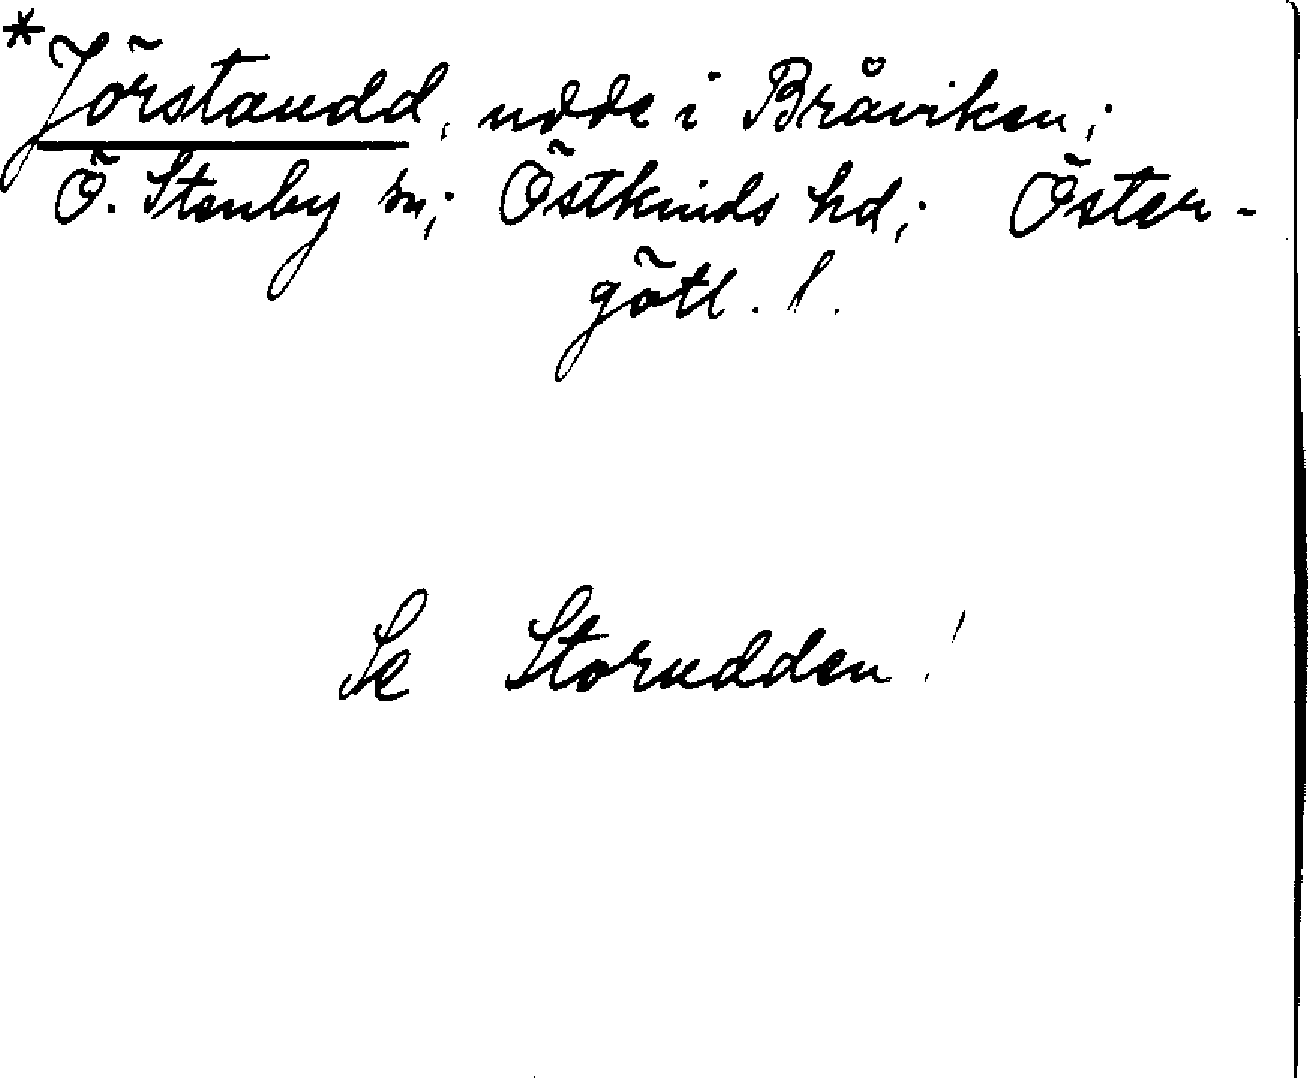 *Jörstaudd, udde i Bråviken;
Ö. Stenby sn; Östkinds hd; Öster-
götl. !.
Se Storudden!